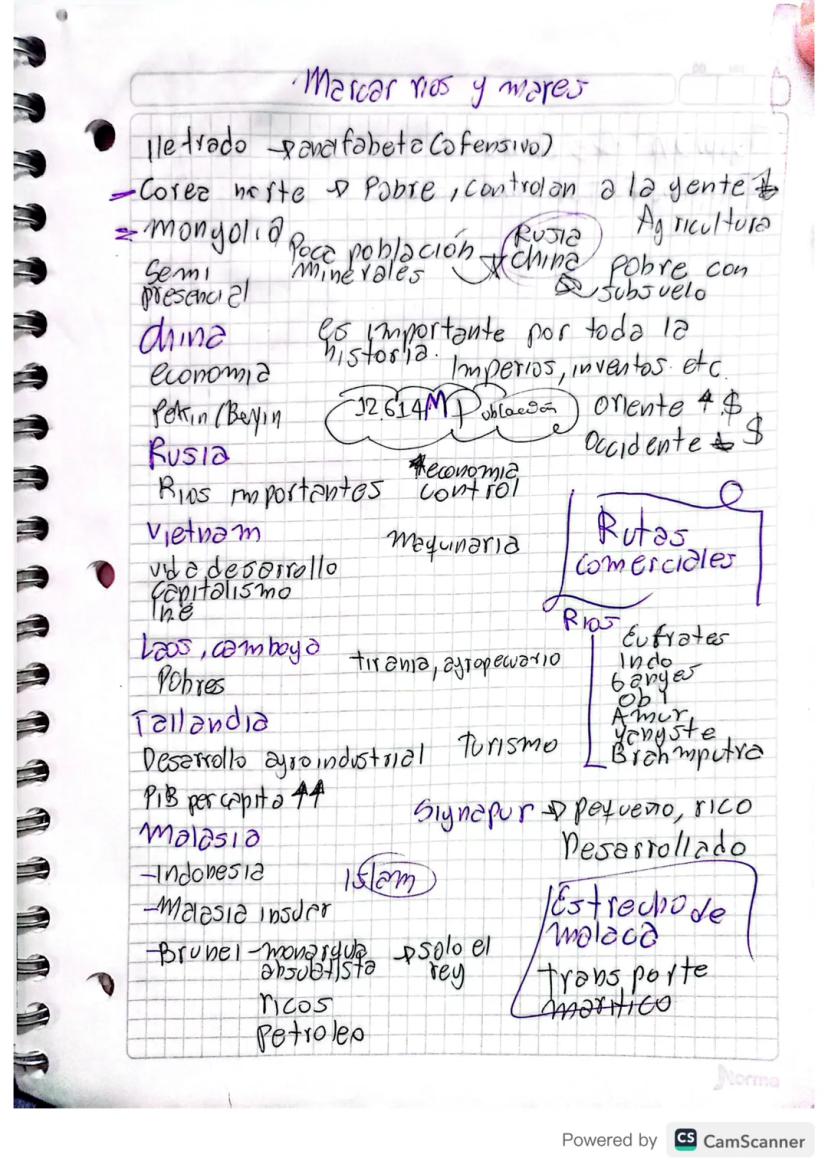 Marcar rios y mares
Iletrado → anafabeta (ofensivo)
Corea norte → Pobre, controlan a la gente
Agricultura
Mongolia
Poca población
minerales
Rusia
China
Semi
presencial
pobre con
subsuelo
China
es importante por toda la
historia.
Imperios, inventos etc.
economia
Pekin/Beyin
12.614M Población
Oriente ↑ $
Occidente ↓ $
Rusia
Rios importantes
economia
control
Vietnam
Maquinaria
Rutas
comerciales
vida desarrollo
capitalismo
Laos, camboya
Pobres
tirania, agropecuario
Rios
Eufrates
Indo
Ganges
Obi
Amur
yangste
Brahmputra
Tailandia
Desarrollo agroindustrial
Turismo
PIB per capita ↑↑
Signapur → pequeño, rico
Desarrollado
Malasia
-Indonesia
Islam
-Malasia
-Brunei - monarquia
absolutista
→ solo el
rey
ricos
petroleo
Estrecho de
malaca
transporte
Norma
Powered by CS CamScanner